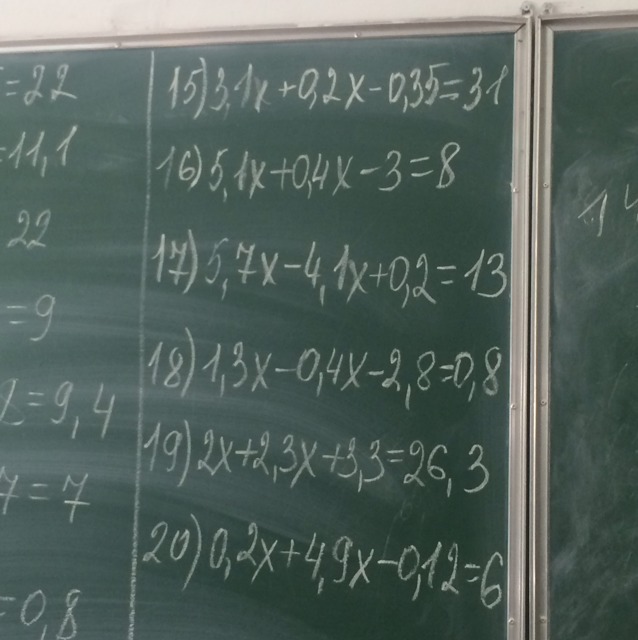 =22
=11,1
22
=9
=9,4
7=7
=0,8
15) 3,1x+0,2x-0,35=31
16) 5,1x+0,4x-3=8
17) 5,7x-4,1x+0,2=13
18) 1,3x-0,4x-2,8=0,8
19) 2x+2,3x+3,3=26,3
20) 0,2x+4,9x-0,12=6
1